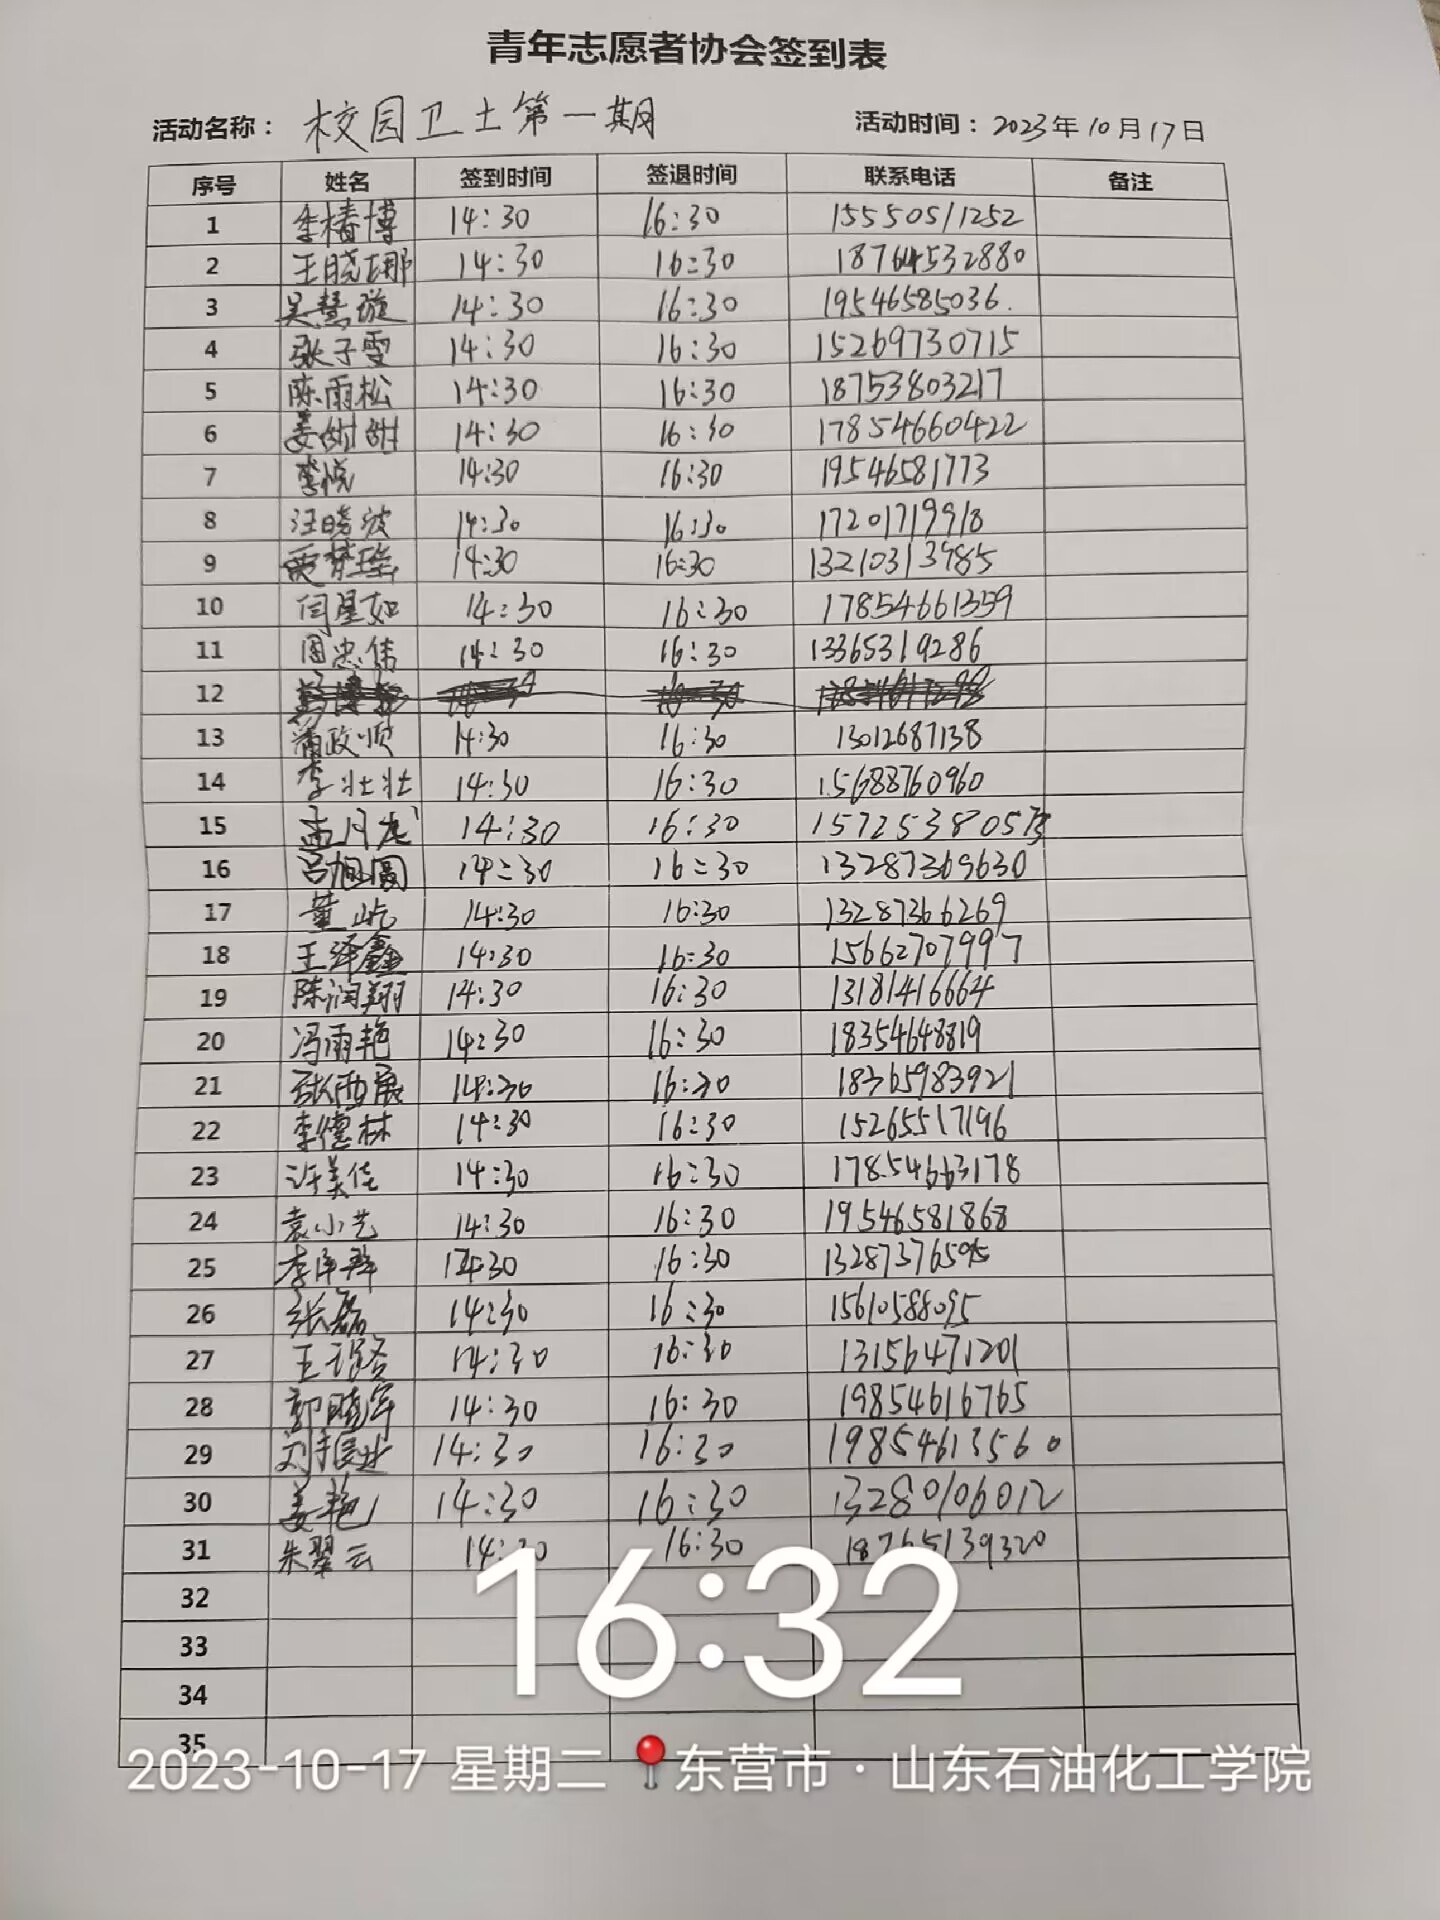 青年志愿者协会签到表
活动名称： 校园卫士第一期 活动时间：2023年10月17日
序号 姓名 签到时间 签退时间 联系电话 备注
1 李椿博 14:30 16:30 15550511252
2 王晓娜 14:30 16:30 18764532880
3 吴慧璇 14:30 16:30 19546585036.
4 张子雯 14:30 16:30 15269730715
5 陈雨松 14:30 16:30 18753803217
6 姜甜甜 14:30 16:30 17854660422
7 李悦 14:30 16:30 19546581773
8 汪晓波 14:30 16:30 17201719918
9 贾梦瑶 14:30 16:30 13210313985
10 闫星如 14:30 16:30 17854661359
11 周忠伟 14:30 16:30 13365319286
12
13 政顺 14:30 16:30 13012687138
14 李壮壮 14:30 16:30 15688760960
15 孟月龙 14:30 16:30
16 吕旭圆 14:30 16:30 13287369630
17 董屹 14:30 16:30 13287366269
18 王泽鑫 14:30 16:30 15662707997
19 陈润翔 14:30 16:30 13181416664
20 冯雨艳 14:30 16:30 18354648819
21 张雨展 14:30 16:30 18365983921
22 李德林 14:30 16:30 15265517196
23 许美佳 14:30 16:30 17854663178
24 袁小艺 14:30 16:30 19546581868
25 李泽群 14:30 16:30 13287376595
26 张磊 14:30 16:30 15610588095
27 王 14:30 16:30 13156471201
28 郭晓军 14:30 16:30 19854616765
29 刘振业 14:30 16:30 19854613560
30 姜艳 14:30 16:30 13280106012
31 朱翠云 14:30 16:30 18765139320
32
33
34
35
16:32
2023-10-17 星期二 东营市·山东石油化工学院